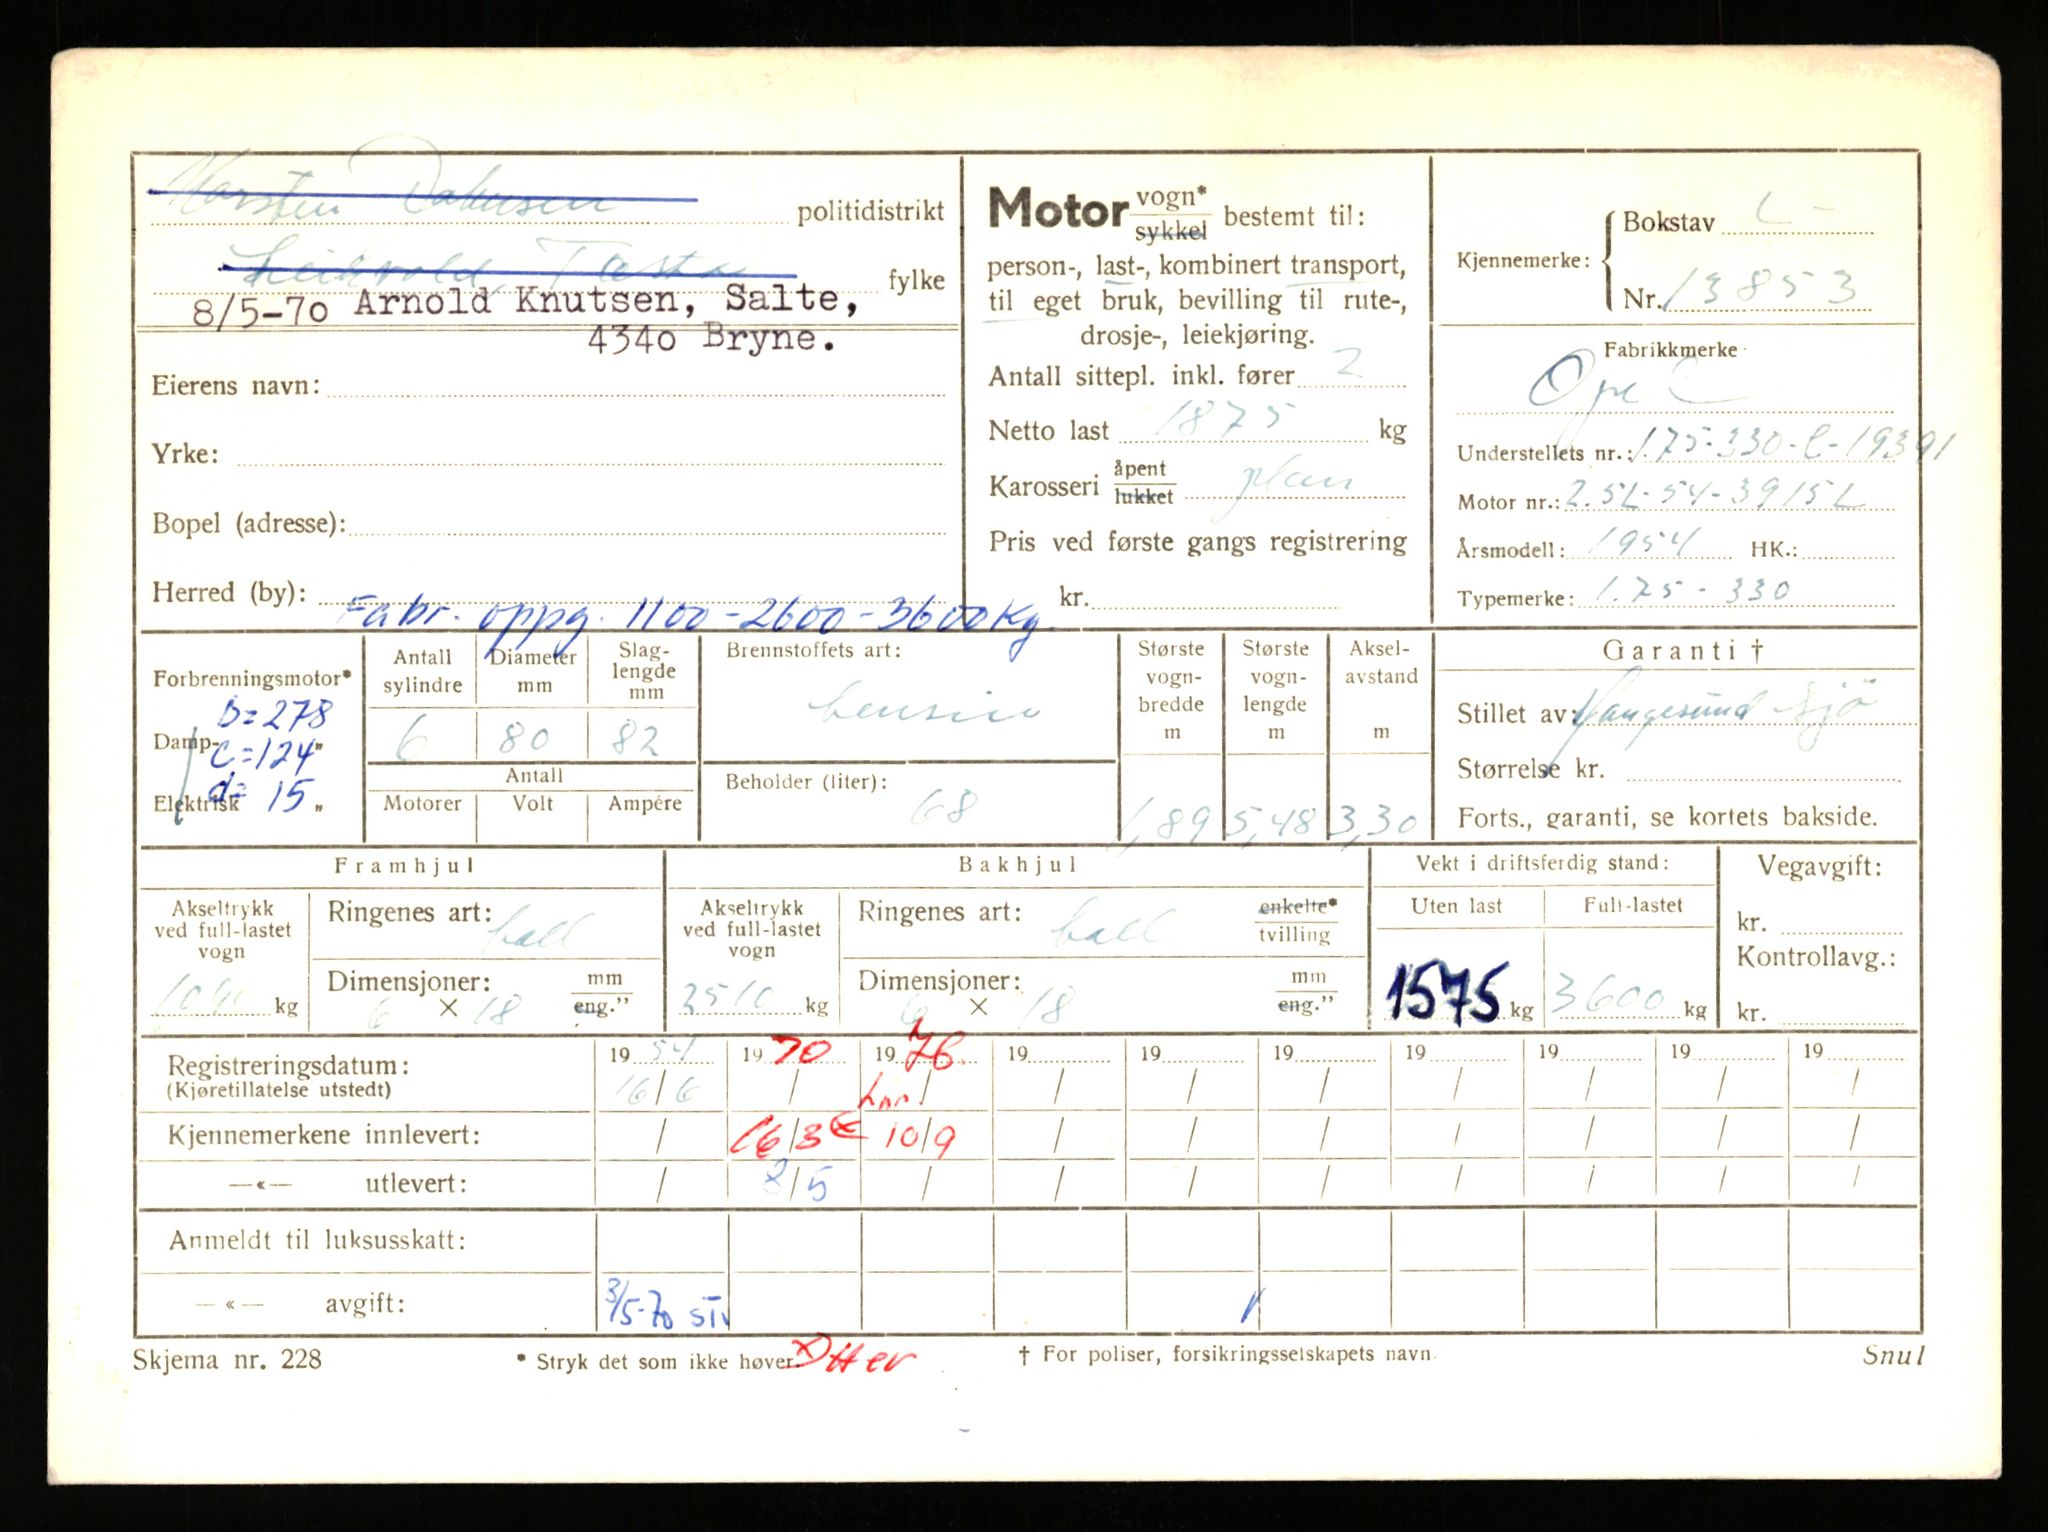 Karsten politidistrikt
fylke
8/5-70 Arnold Knutsen, Salte,
4340 Bryne.
Eierens navn:
Yrke:
Bopel (adresse):
Herred (by):
Fabr. oppg. 1100-2600-3600 Kg.
Motor vogn* sykkel bestemt til:
person-, last-, kombinert transport,
til eget bruk, bevilling til rute-,
drosje-, leiekjøring.
Antall sittepl. inkl. fører 2
Netto last 1875 kg
Karosseri åpent lukket plan
Pris ved første gangs registrering
kr.
Kjennemerke: Bokstav L-
Nr. 13853
Fabrikkmerke
Opel
Understellets nr.: 1.75-330-L-19391
Motor nr.: 2.5L-54-3915L
Årsmodell: 1954 HK.:
Typemerke: 1.75-330
Forbrenningsmotor*
Damp-
Elektrisk
b=278
c=124"
d= 15 "
Antall sylindre 6
Diameter mm 80
Slag-lengde mm 82
Antall
Motorer Volt Ampére
Brennstoffets art: bensin
Beholder (liter): 68
Største vogn-bredde m 1,89
Største vogn-lengde m 5,48
Aksel-avstand m 3,30
Garanti †
Stillet av: Haugesund Sjö
Størrelse kr.
Forts., garanti, se kortets bakside.
Framhjul
Akseltrykk ved full-lastet vogn 1090 kg
Ringenes art: ball
Dimensjoner: 6 × 18 mm eng."
Bakhjul
Akseltrykk ved full-lastet vogn 2510 kg
Ringenes art: ball enkelte* tvilling
Dimensjoner: 6 × 18 mm eng."
Vekt i driftsferdig stand:
Uten last 1575 kg
Full-lastet 3600 kg
Vegavgift:
kr.
Kontrollavg.:
kr.
Registreringsdatum: 19 54 19 70 19 76 19 19 19 19 19 19 19
(Kjøretillatelse utstedt) 16/6 / / / / / / / / /
Kjennemerkene innlevert: / 16/3 10/9 / / / / / / /
—«— utlevert: / 8/5 / / / / / / / /
Anmeldt til luksusskatt:
—«— avgift: 3/5-70
Skjema nr. 228 * Stryk det som ikke høver. † For poliser, forsikringsselskapets navn. Snul